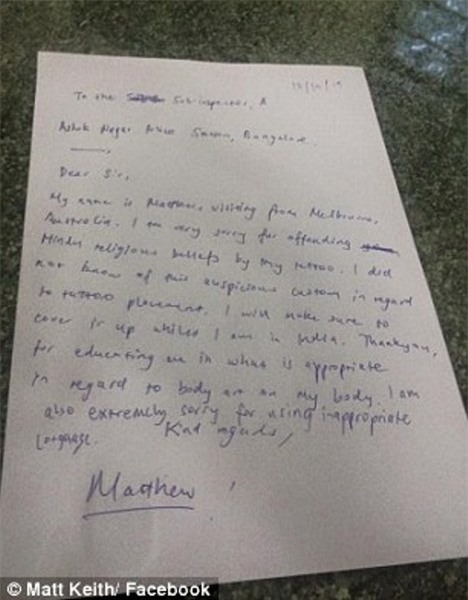 To the Sub inspector, A
Ashok Nagar Police Station, Bangalore.
Dear Sir,
My name is Matthew visiting from Melbourne,
Australia. I am very sorry for offending
Hindu religious beliefs by my tattoo. I did
not know of this auspicious custom in regard
to tattoo placement. I will make sure to
cover it up whilst I am in India. Thankyou,
for educating me in what is appropriate
in regard to body art on my body. I am
also extremely sorry for using inappropriate
language. Kind regards,
Matthew
© Matt Keith/ Facebook